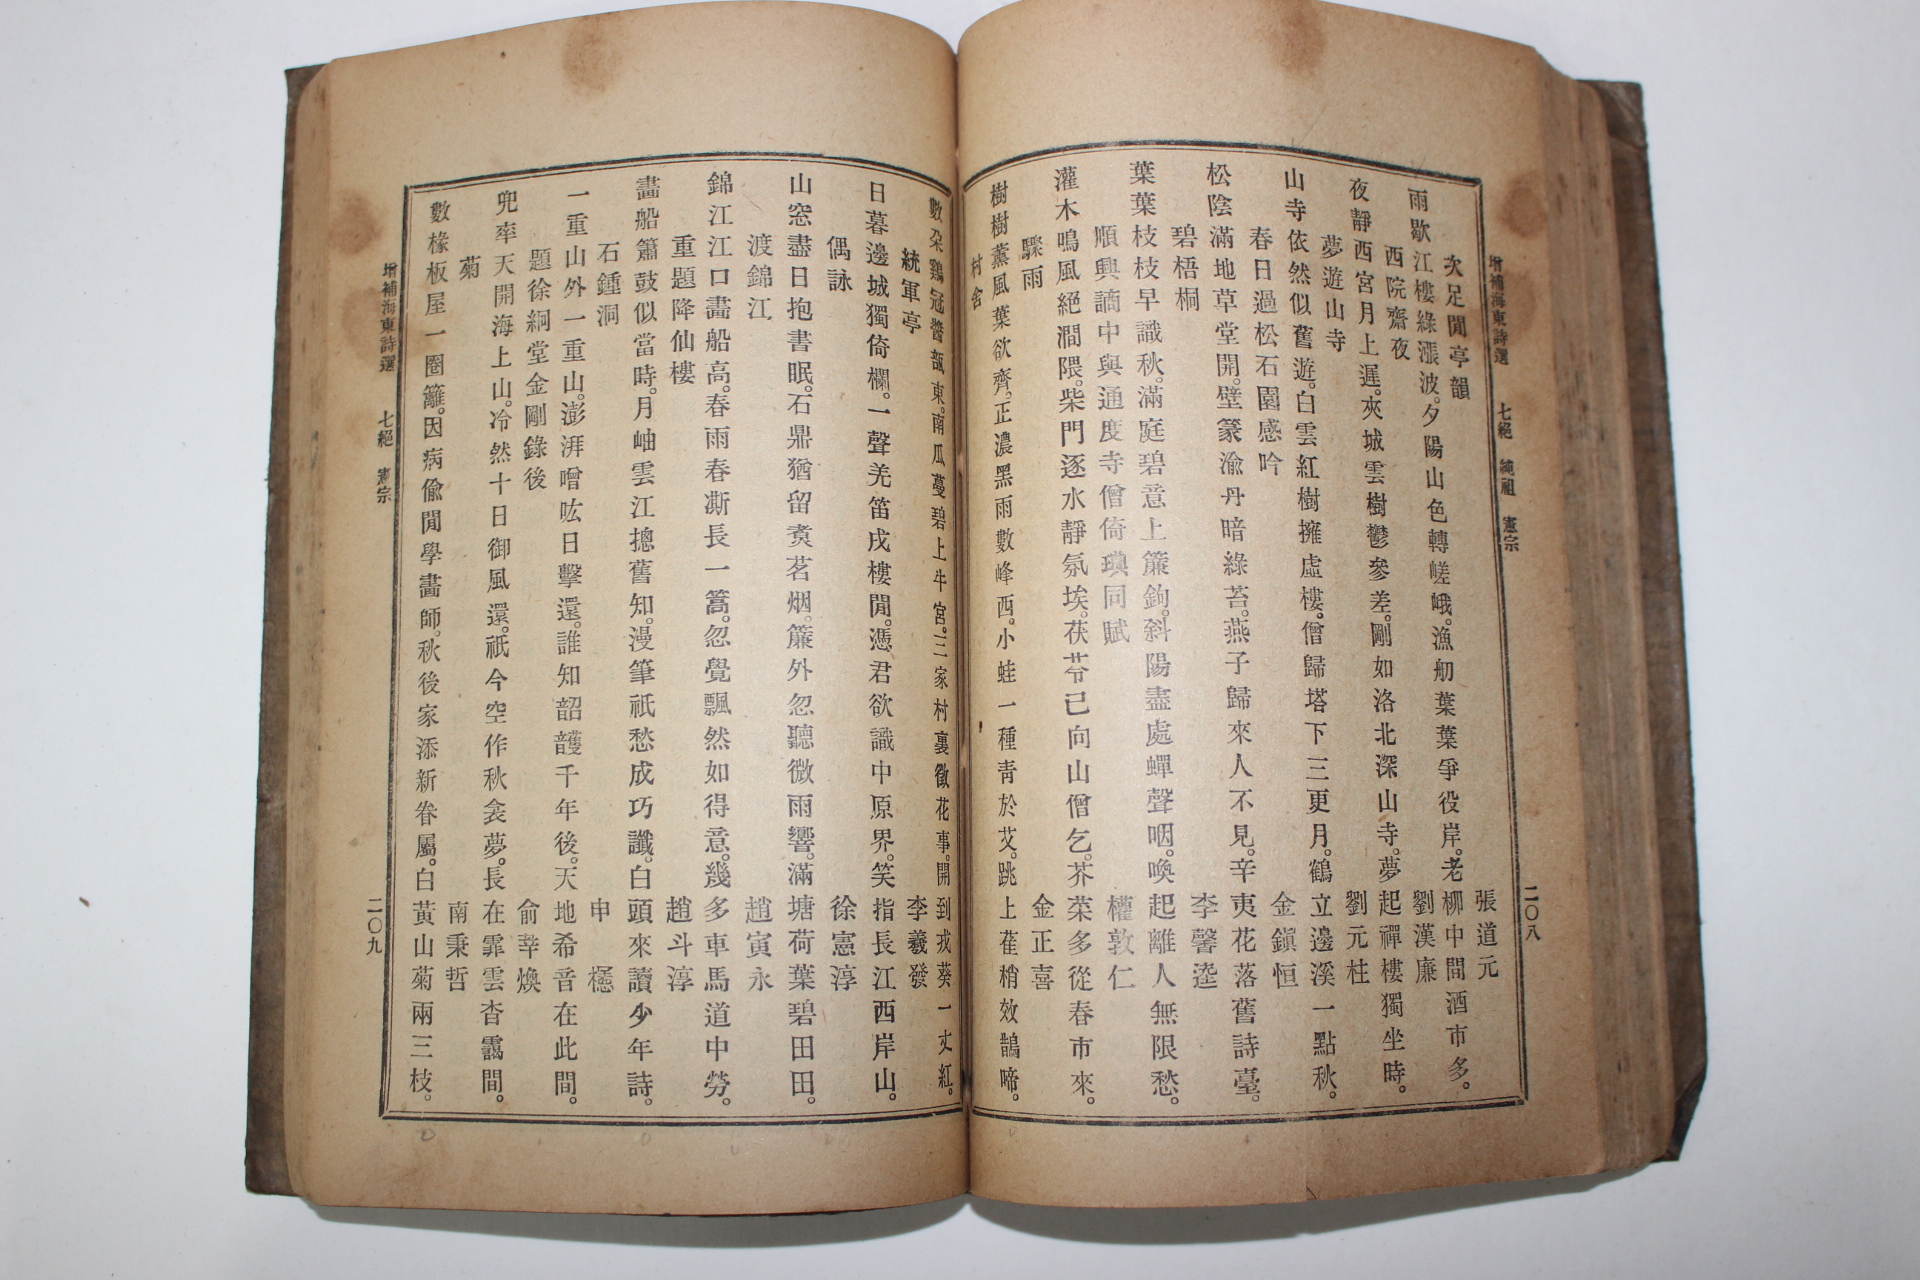 增補海東詩選　七絕　純祖　憲宗　二〇八
次足閒亭韻　張道元
雨歇江樓綠漲波。夕陽山色轉嵯峨。漁舠葉葉爭役岸。老柳中間酒市多。
西院齋夜　劉漢廉
夜靜西宮月上遲。夾城雲樹鬱參差。剛如洛北深山寺。夢起禪樓獨坐時。
夢遊山寺　劉元柱
山寺依然似舊遊。白雲紅樹擁虛樓。僧歸塔下三更月。鶴立邊溪一點秋。
春日過松石園感吟　金鎭恒
松陰滿地草堂開。壁篆渝丹暗綠苔。燕子歸來人不見。辛夷花落舊詩臺。
碧梧桐　李馨逵
葉葉枝枝早識秋。滿庭碧意上簾鉤。斜陽盡處蟬聲咽。喚起離人無限愁。
順興謫中與通度寺僧倚璵同賦　權敦仁
灌木鳴風絕澗隈。柴門逐水靜氛埃。茯苓已向山僧乞。芥菜多從春市來。
驟雨　金正喜
樹樹薰風葉欲齊。正濃黑雨數峰西。小蛙一種靑於艾。跳上蕉梢效鵲啼。
村舍
數朶鷄冠醬瓿東。南瓜蔓碧上牛宮。三家村裏徵花事。開到戎葵一丈紅。
統軍亭　李羲發
日暮邊城獨倚欄。一聲羌笛戍樓閒。憑君欲識中原界。笑指長江西岸山。
偶詠　徐憲淳
山窓盡日抱書眠。石鼎猶留煑茗烟。簾外忽聽微雨響。滿塘荷葉碧田田。
渡錦江　趙寅永
錦江江口畵船高。春雨春澌長一篙。忽覺飄然如得意。幾多車馬道中勞。
重題降仙樓　趙斗淳
畵船簫鼓似當時。月岫雲江摠舊知。漫筆祇愁成巧讖。白頭來讀少年詩。
石鍾洞　申櫶
一重山外一重山。澎湃噌吰日擊還。誰知韶頀千年後。天地希音在此間。
題徐絅堂金剛錄後　俞莘煥
兜率天開海上山。冷然十日御風還。祇今空作秋衾夢。長在霏雲杳靄間。
菊　南秉哲
數椽板屋一圈籬。因病偸閒學畵師。秋後家添新眷屬。白黃山菊兩三枝。
增補海東詩選　七絕　憲宗　二〇九